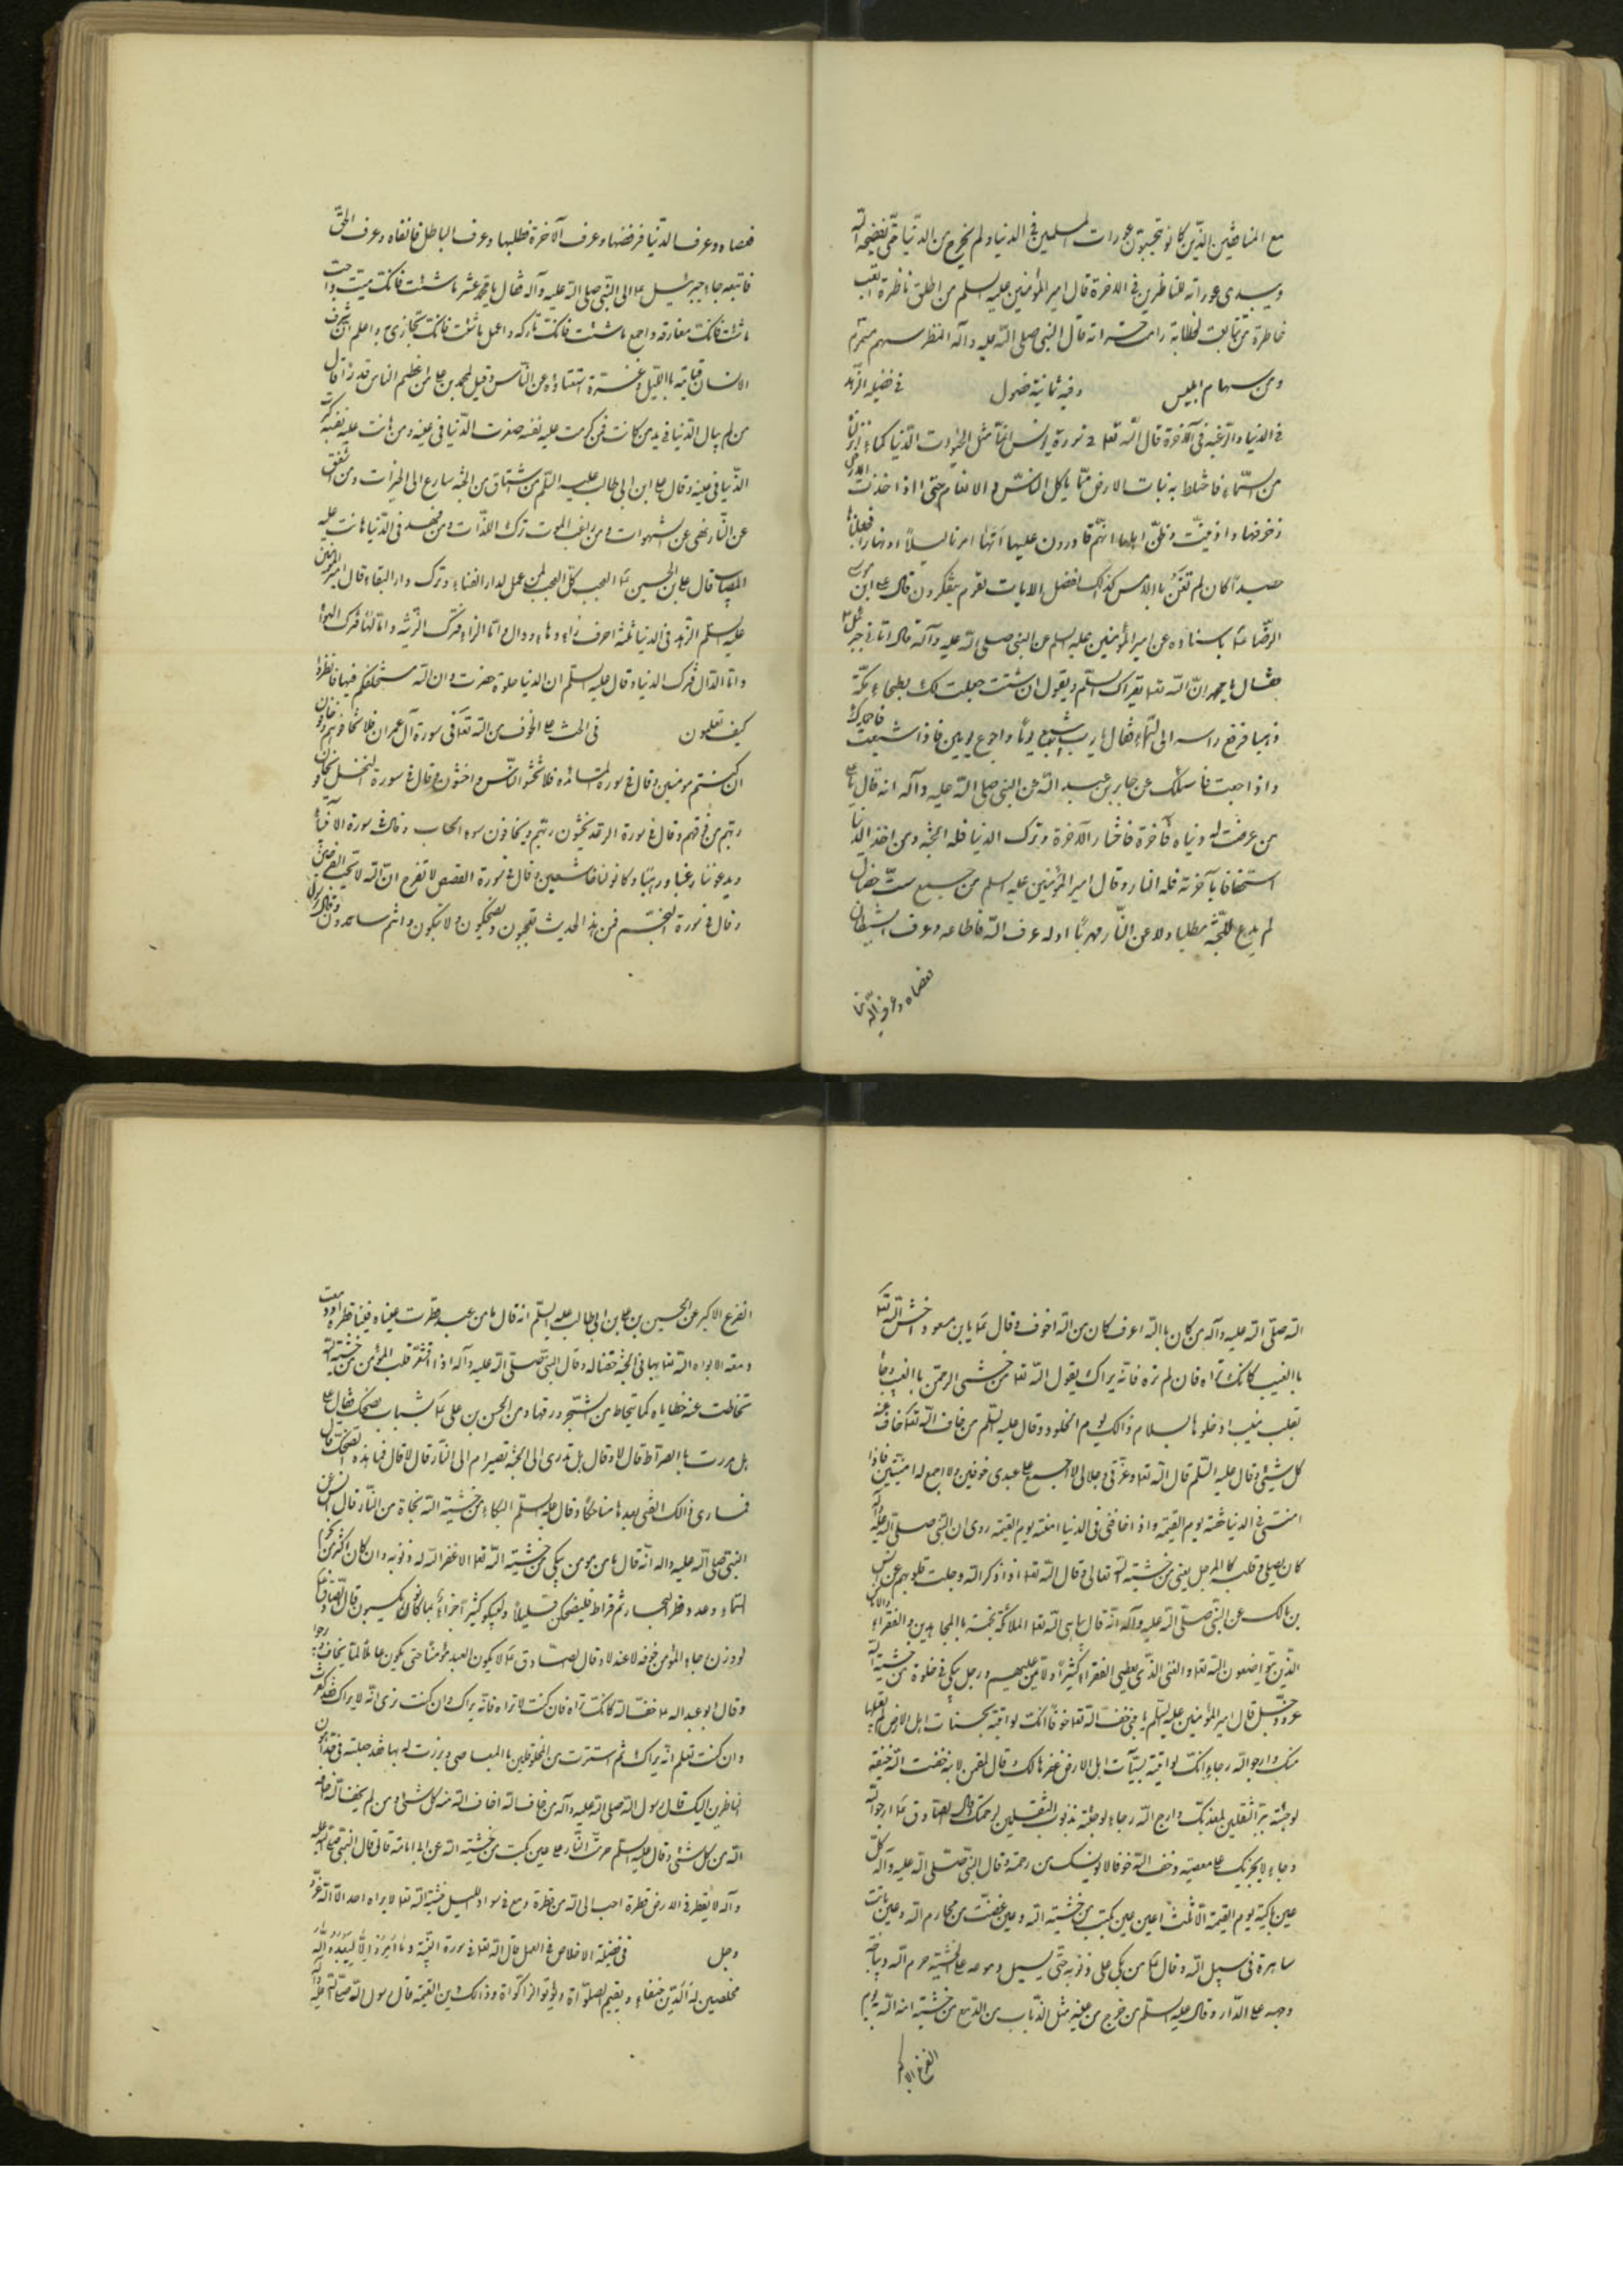 مع المنافقين الذين كانوا يتجسسون عورات المسلمين في الدنيا ولم يخرج من الدنيا حتى يفضحه الله
ويبدي عوراته للناظرين في الاخرة قال امير المؤمنين عليه السلم من اطلق ناظره اتعب
خاطره من تتابعت لحظاته دامت حسراته قال النبي صلى الله عليه وآله النظر سهم مسموم
من سهام ابليس وفيه ثمانية فصول في فضيلة الزهد
في الدنيا والرغبة في الآخرة قال الله تعا في سورة يونس انما مثل الحيوة الدنيا كماء انزلناه
من السماء فاختلط به نبات الارض مما ياكل الناس والانعام حتى اذا اخذت الارض
زخرفها وازينت وظن اهلها انهم قادرون عليها اتيها امرنا ليلا او نهارا فجعلناها
حصيدا كان لم تغن باالامس كذلك نفصل الايات لقوم يتفكرون قال على ابن موسى
الرضا ع باسناده عن امير المؤمنين عليه السلم عن النبي صلى الله عليه وآله قال اتاني جبرئيل
فقال يا محمد ان الله تعا يقرئك السلم ويقول ان شئت جعلت لك بطحاء مكة
ذهبا فرفع راسه الى السماء فقال يا رب اشبع يوما واجوع يومين فاذا شبعت فاحمدك
واذا جعت فاسئلك عن جابر بن عبد الله عن النبي صلى الله عليه وآله انه قال يا على
من عرضت له دنياه وآخرة فاختار الآخرة وترك الدنيا فله الجنة ومن اخذ الدنيا
استخفافا بآخرته فله النار وقال امير المؤمنين عليه السلم من جمع ست خصال
لم يدع للجنة مطلبا ولا عن النار مهربا اوله عرف الله فاطاعه وعرف الشيطان
فعصاه وعرف الدنيا
فعصاه وعرف الدنيا فرفضها وعرف الآخرة فطلبها وعرف الباطل فاتقاه وعرف الحق
فاتبعه جاء جبرئيل ع الى النبي صلى الله عليه وآله فقال يا محمد عش ما شئت فانك ميت واحب
ما شئت فانك مفارقه واجمع ما شئت فانك تاركه واعمل ما شئت فانك تجازى به واعلم ان شرف
الانسان قيامه باالليل وعزته استغناؤه عن الناس وقيل لمحمد بن على من اعظم الناس قدرا قال
من لم يبال الدنيا في يد من كانت فمن كرمت عليه نفسه صغرت الدنيا في عينه ومن هانت عليه نفسه كبرت
الدنيا في عينه وقال على ابن ابي طالب عليه السلم من اشتاق من الجنة سارع الى الخيرات ومن شفق
عن النار نهى عن الشهوات ومن راقب الموت ترك اللذات ومن زهد في الدنيا هانت عليه
المصيبات قال على بن الحسين ع العجب كل العجب لمن عمل لدار الفناء وترك دار البقاء قال امير المؤمنين
عليه السلم الزهد في الدنيا ثلثة احرف زاء وهاء ودال واما الزاء فترك الزينة واما الهاء فترك الهوا
واما الدال فترك الدنيا وقال عليه السلم ان الدنيا حلوة خضرة وان الله مستخلفكم فيها فانظروا
كيف تعملون في الحث على الخوف من الله تعا في سورة آل عمران فلا تخافوهم وخافون
ان كنتم مومنين وقال في سورة المائدة فلا تخشوا الناس واخشون وقال في سورة النحل يخافون
ربهم من فوقهم وقال في سورة الرعد يخشون ربهم ويخافون سوء الحساب وقال في سورة الانبياء
ويدعوننا رغبا ورهبا وكانوا لنا خاشعين وقال في سورة القصص لا تفرح ان الله لا يحب الفرحين
وقال في سورة النجم فمن هذا الحديث تعجبون وتضحكون ولا تبكون وانتم سامدون وقال رسول
الله صلى الله عليه وآله من كان باالله اعرف كان من الله اخوف وقال ع يا بن مسعود اخش الله تعا
باالغيب كانك تراه فان لم تره فانه يراك يقول الله تعا من خشى الرحمن باالغيب وجاء
بقلب منيب ادخلوها بسلام ذالك يوم الخلود وقال عليه السلم من خاف الله تعا خاف عنه
كل شيئ وقال عليه السلم قال الله تعا وعزتي وجلالي لا اجمع على عبدى خوفين ولا اجمع له امنين فاذا
امنني في الدنيا اخفته يوم القيمة واذا خافني في الدنيا امنته يوم القيمة روى ان النبي صلى الله عليه وآله
كان يصلى وقلبه كاالمرجل يغلي من خشية الله تعالى وقال الله تعا اذا ذكر الله وجلت قلوبهم عن انس
بن مالك عن النبي صلى الله عليه وآله انه قال يباهى الله تعا الملائكة بخمسة باالمجاهدين والفقراء
الذين تواضعون الله تعا والغنى الذى يعطى الفقراء كثيرا ولا يمن عليهم ورجل يبكى في خلوة من خشية الله
عز وجل قال امير المؤمنين عليه السلم يا بني خف الله تعا خوفا انك لو اتيته بحسنات اهل الارض لم يقبلها
منك وارجو الله رجاء انك لو اتيته بسيآت اهل الارض غفرها لك قال لقمن لابنه خف الله خيفة
لو جئته ببر الثقلين لعذبك وارج الله رجاء لو جئته بذنوب الثقلين لرحمك وقال الصادق ع ارجو الله
رجاء لا يجرئك على معصيته وخف الله خوفا لا يؤيسك من رحمته وقال النبي صلى الله عليه وآله كل
عين باكية يوم القيمة الا ثلث اعين عين بكت من خشية الله وعين غضت من محارم الله وعين باتت
ساهرة في سبيل الله وقال ع من بكى على ذنوبه حتى يسيل دموعه على لحيته حرم الله ديباجة
وجهه على النار وقال عليه السلم من خرج من عينيه مثل الذباب من الدمع من خشية امنه الله به يوم
الفزع الاكبر
الفزع الاكبر عن الحسين بن على بن ابي طالب عليه السلم انه قال ما من عبد قطرت عيناه فينا قطرة او دمعت
دمعة الا بواه الله تعا بها في الجنة حقبا وقال النبي صلى الله عليه وآله اذا اقشعر قلب المؤمن من خشية الله
تحاطت عنه خطاياه كما يتحاط من الشجر ورقها ومر الحسن بن على ع بشاب يضحك فقال
هل مررت باالصراط قال لا وقال هل تدرى الى الجنة تصير ام الى النار قال لا قال فما هذه الضحك قال
فما رى ذالك الفتى بعدها ضاحكا وقال عليه السلم البكاء من خشية الله نجاة من النار قال انس عن
النبي صلى الله عليه واله انه قال ما من مومن يبكي من خشية الله تعا الا غفر الله له ذنوبه وان كان اكثر من نجوم
السماء وعدد قطر البحار ثم قرأ فليضحكوا قليلا وليبكوا كثيرا جزاء بما كانوا يكسبون قال الصادق ع
لو وزن رجاء المؤمن خوفه لاعتدلا وقال الصادق ع لا يكون العبد مؤمنا حتى يكون عاملا لما يخاف ويرجوا
وقال ابو عبد الله ع خف الله كانك تراه فان كنت لا تراه فانه يراك وان كنت ترى انه لا يراك فقد كفرت
وان كنت تعلم انه يراك ثم استترت من المخلوقين باالمعاصى وبرزت له بها فقد جعلته في حد اهون
الناظرين اليك قال رسول الله صلى الله عليه وآله من خاف الله اخاف الله منه كل شئ ومن لم يخف الله اخافه
الله من كل شئ وقال عليه السلم حرمت النار على عين بكت من خشية الله عن ابى امامة قال قال النبي صلى الله عليه
وآله لا يقطر في الارض قطرة احب الى الله من قطرة دمع في سواد الليل خشية الله تعا لا يراه احد الا الله عز
وجل في فضيلة الاخلاص في العمل قال الله تعا في سورة البينة وما امروا الا ليعبدوا الله
مخلصين له الدين حنفاء ويقيموا الصلوة ويؤتوا الزاكواة وذالك دين القيمة قال رسول الله صلى الله عليه وآله